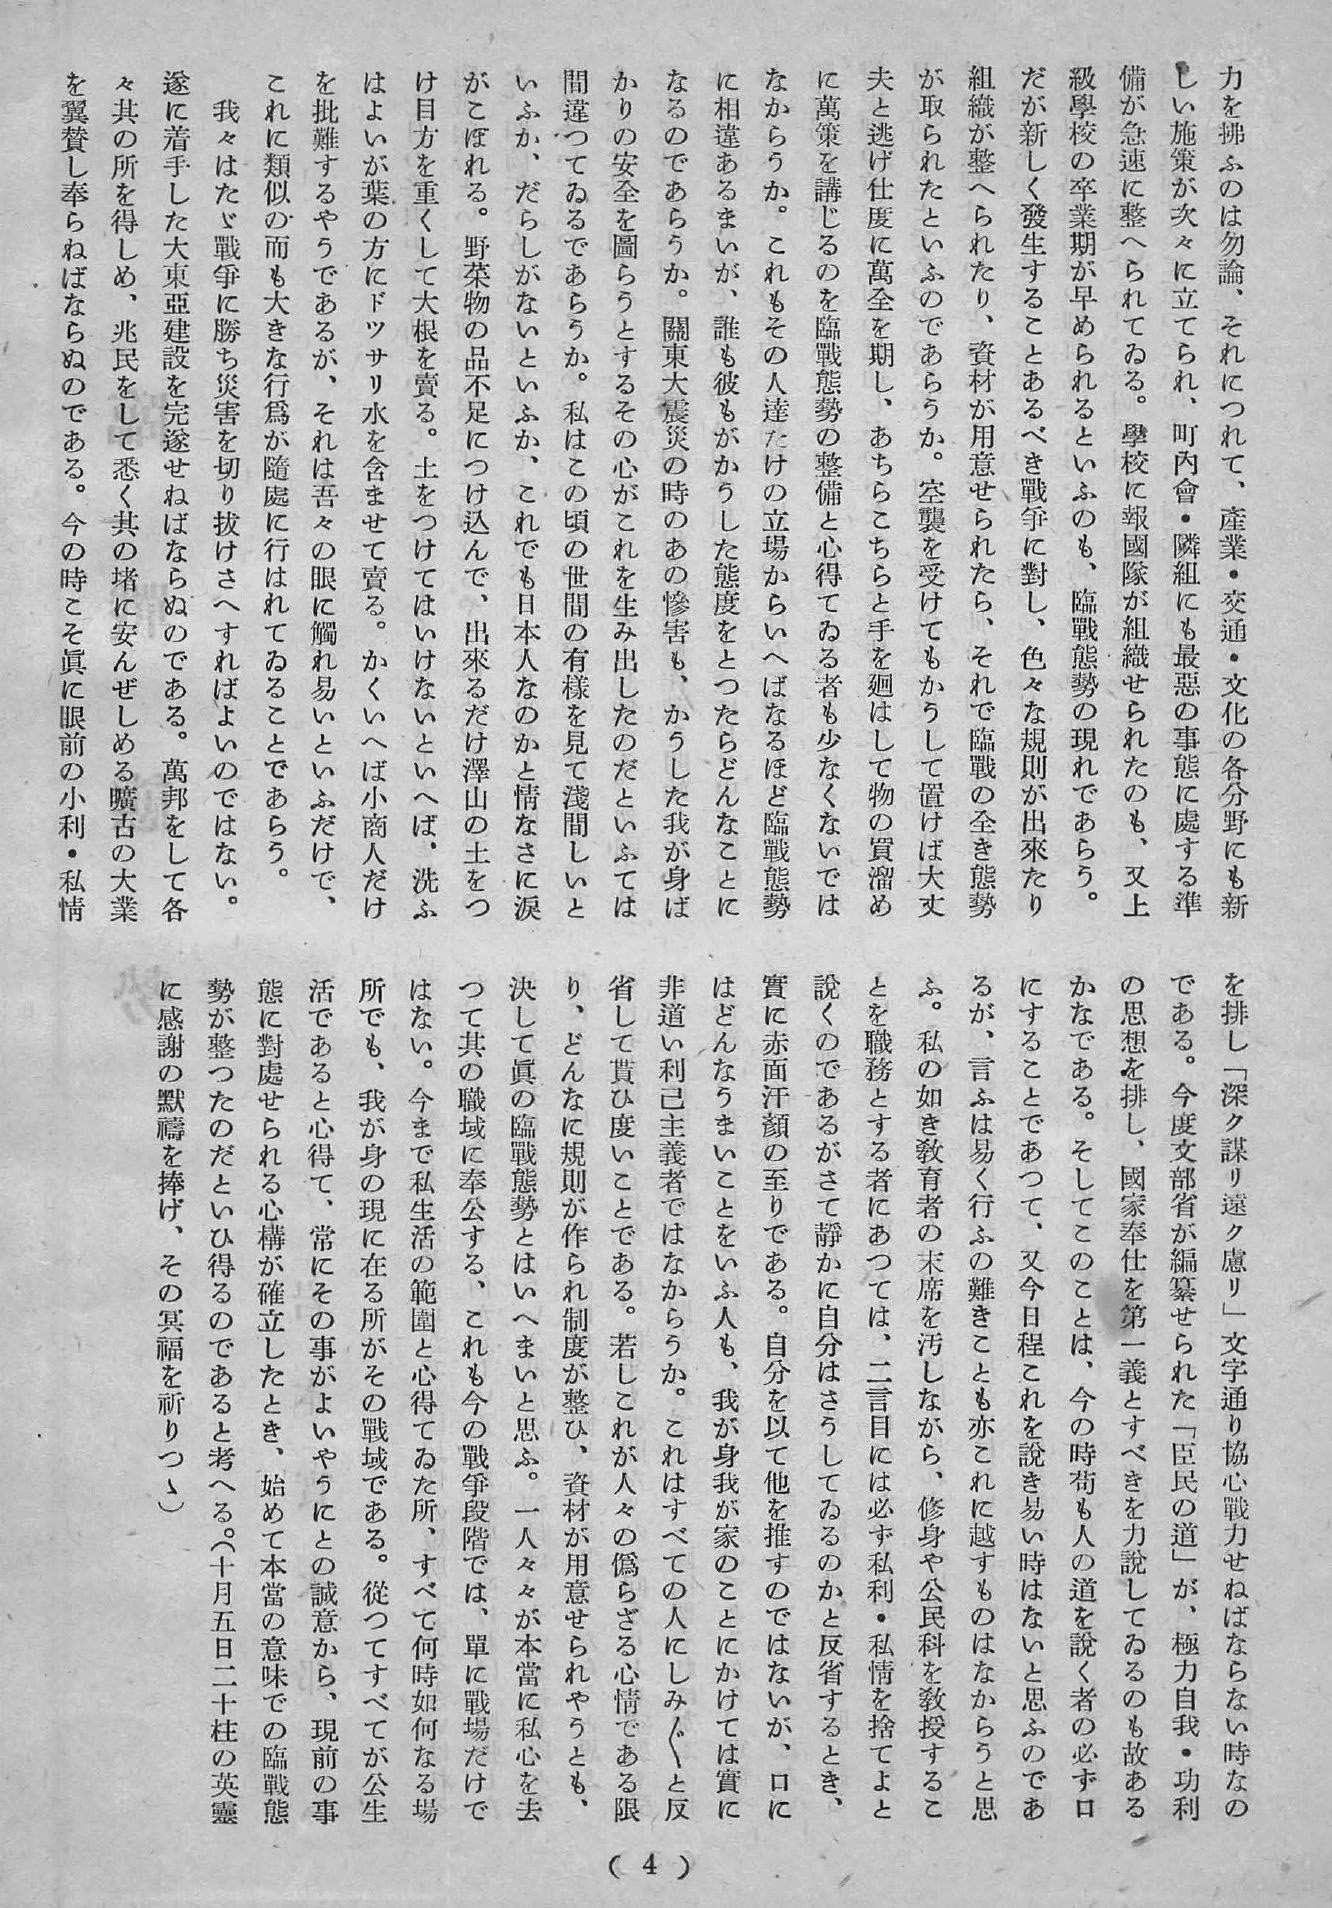 力を拂ふのは勿論、それにつれて、產業・交通・文化の各分野にも新
しい施策が次々に立てられ、町內會・隣組にも最惡の事態に處する準
備が急速に整へられてゐる。學校に報國隊が組織せられたのも、又上
級學校の卒業期が早められるといふのも、臨戰態勢の現れであらう。
だが新しく發生することあるべき戰爭に對し、色々な規則が出來たり
組織が整へられたり、資材が用意せられたら、それで臨戰の全き態勢
が取られたといふのであらうか。空襲を受けてもかうして置けば大丈
夫と逃げ仕度に萬全を期し、あちらこちらと手を廻はして物の買溜め
に萬策を講じるのを臨戰態勢の整備と心得てゐる者も少なくないでは
なからうか。これもその人達だけの立場からいへばなるほど臨戰態勢
に相違あるまいが、誰も彼もがかうした態度をとつたらどんなことに
なるのであらうか。關東大震災の時のあの慘害も、かうした我が身ば
かりの安全を圖らうとするその心がこれを生み出したのだといふては
間違つてゐるであらうか。私はこの頃の世間の有樣を見て淺間しいと
いふか、だらしがないといふか、これでも日本人なのかと情なさに淚
がこぼれる。野菜物の品不足につけ込んで、出來るだけ澤山の土をつ
け目方を重くして大根を賣る。土をつけてはいけないといへば、洗ふ
はよいが葉の方にドツサリ水を含ませて賣る。かくいへば小商人だけ
を批難するやうであるが、それは吾々の眼に觸れ易いといふだけで、
これに類似の而も大きな行爲が隨處に行はれてゐることであらう。
　我々はたゞ戰爭に勝ち災害を切り拔けさへすればよいのではない。
遂に着手した大東亞建設を完遂せねばならぬのである。萬邦をして各
々其の所を得しめ、兆民をして悉く其の堵に安んぜしめる曠古の大業
を翼贊し奉らねばならぬのである。今の時こそ眞に眼前の小利・私情
を排し「深ク謀リ遠ク慮リ」文字通り協心戰力せねばならない時なの
である。今度文部省が編纂せられた「臣民の道」が、極力自我・功利
の思想を排し、國家奉仕を第一義とすべきを力說してゐるのも故ある
かなである。そしてこのことは、今の時苟も人の道を說く者の必ず口
にすることであつて、又今日程これを說き易い時はないと思ふのであ
るが、言ふは易く行ふの難きことも亦これに越すものはなからうと思
ふ。私の如き敎育者の末席を汚しながら、修身や公民科を敎授するこ
とを職務とする者にあつては、二言目には必ず私利・私情を捨てよと
說くのであるがさて靜かに自分はさうしてゐるのかと反省するとき、
實に赤面汗顏の至りである。自分を以て他を推すのではないが、口に
はどんなうまいことをいふ人も、我が身我が家のことにかけては實に
非道い利己主義者ではなからうか。これはすべての人にしみ〲と反
省して貰ひ度いことである。若しこれが人々の僞らざる心情である限
り、どんなに規則が作られ制度が整ひ、資材が用意せられやうとも、
決して眞の臨戰態勢とはいへまいと思ふ。一人々々が本當に私心を去
つて其の職域に奉公する、これも今の戰爭段階では、單に戰場だけで
はない。今まで私生活の範圍と心得てゐた所、すべて何時如何なる場
所でも、我が身の現に在る所がその戰域である。從つてすべてが公生
活であると心得て、常にその事がよいやうにとの誠意から、現前の事
態に對處せられる心構が確立したとき、始めて本當の意味での臨戰態
勢が整つたのだといひ得るのであると考へる。（十月五日二十柱の英靈
に感謝の默禱を捧げ、その冥福を祈りつゝ）
( 4 )